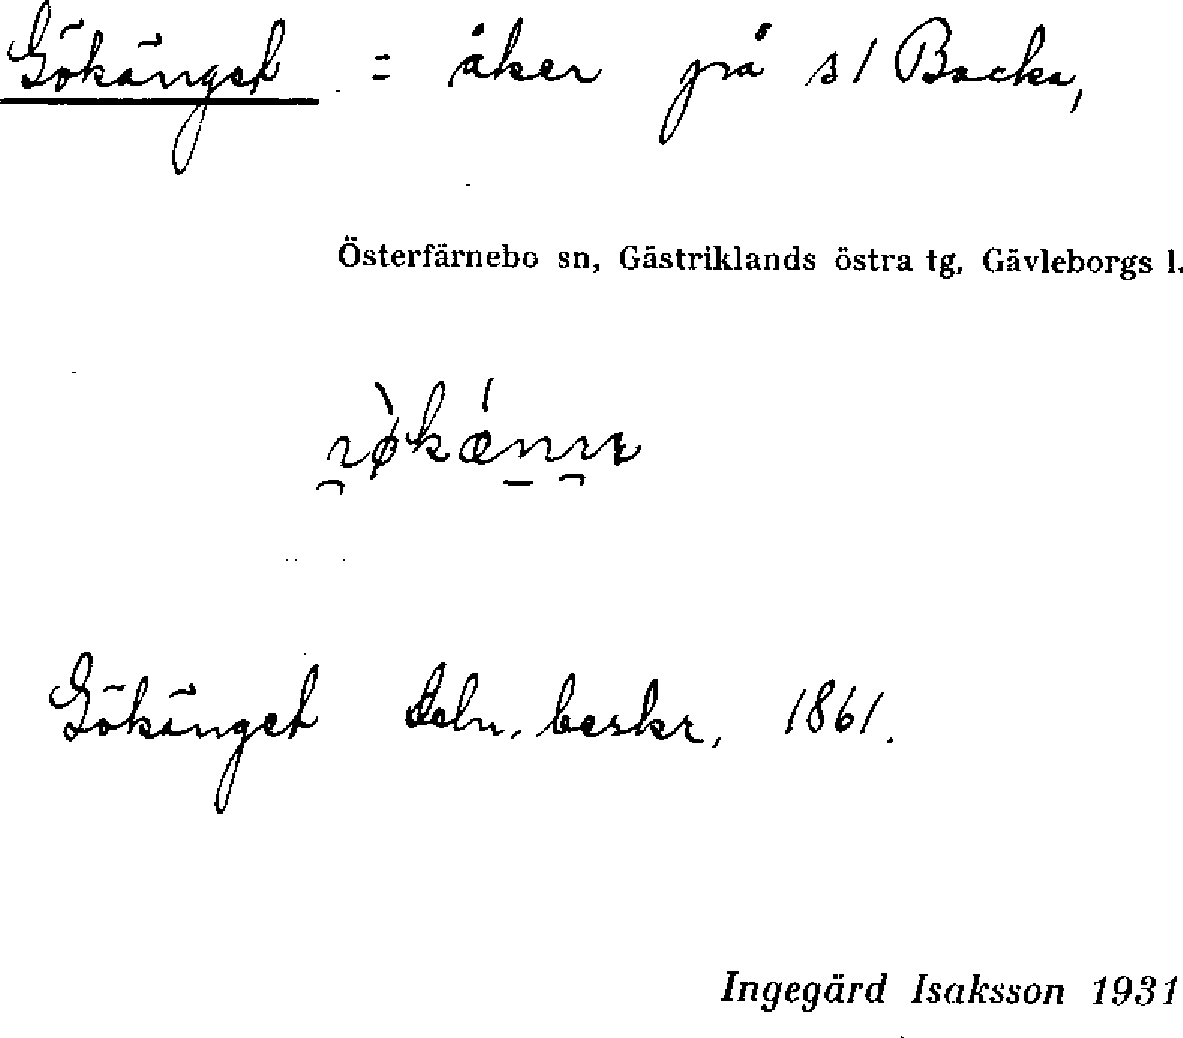 Gökänget = åker på s/ Backa,
Österfärnebo sn, Gästriklands östra tg, Gävleborgs l.
Gökänget beskr, 1861.
Ingegärd Isaksson 1931